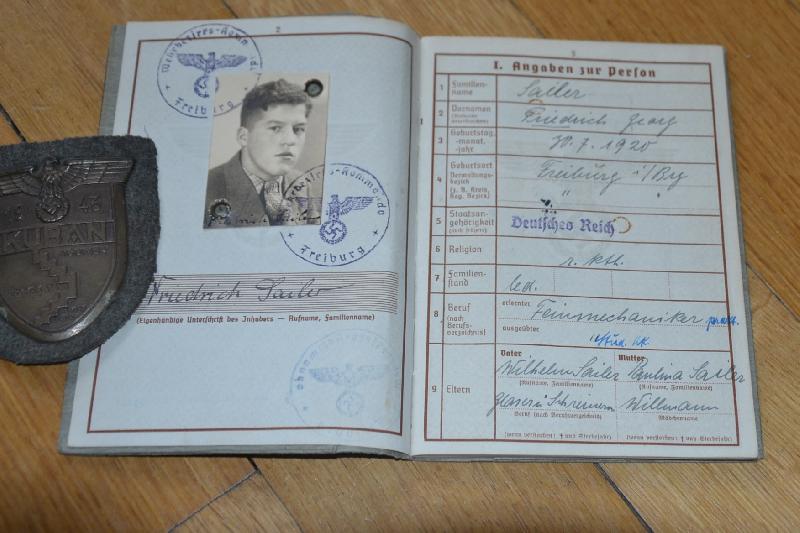 2
Wehrbezirks-Kommando
Freiburg
Wehrbezirks-Kommando
Freiburg
Friedrich Sailer
(Eigenhändige Unterschrift des Inhabers — Rufname, Familienname)
KUBAN
3
I. Angaben zur Person
1 Familien-name Sailer
2 Vornamen Friedrich Georg
3 Geburtstag, -monat, -jahr 7. 1920
4 Geburtsort Verwaltungs-bezirk (z. B. Kreis, Reg.-Bezirk) Freiburg i/Brg
" "
5 Staatsan-gehörigkeit Deutsches Reich
6 Religion r. kth.
7 Familien-stand led.
8 Beruf (nach Berufs-verzeichnis) erlernter Feinmechaniker
ausgeübter
9 Eltern Vater Mutter
Wilhelm Sailer Paulina Sailer
(Rufname, Familienname) (Rufname, Familienname)
Schreiner Willmann
Beruf (nach Berufsverzeichnis) Mädchenname
(wenn verstorben: † und Sterbejahr) (wenn verstorben: † und Sterbejahr)